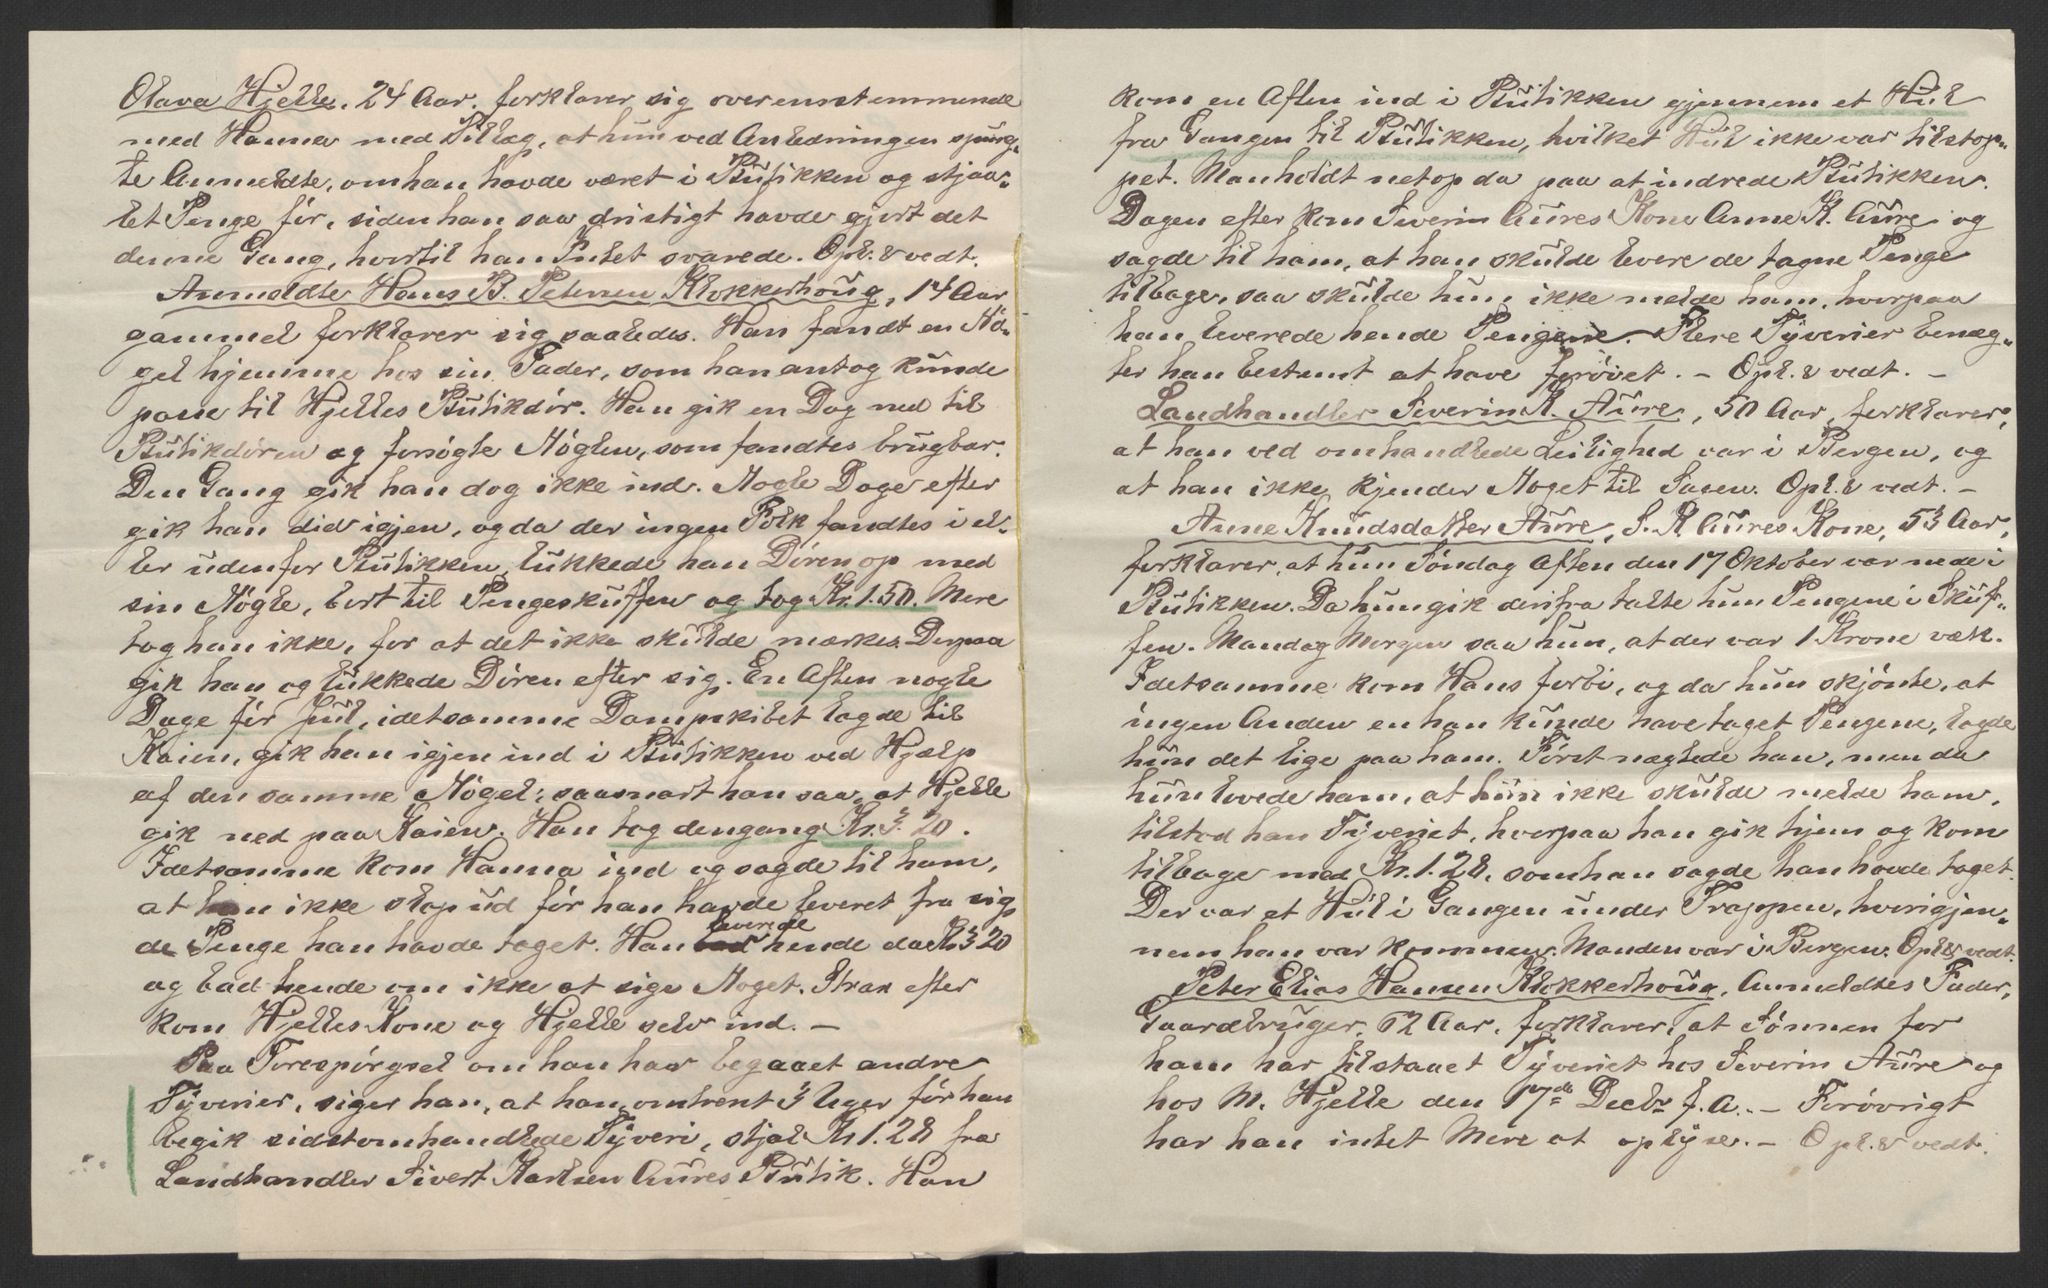 Olava Hjelle, 24 Aar, forklarer sig overensstemmende
med Hanna med Tillæg, at hun ved Anledningen spurg-
te Anmeldte, om han havde været i Butikken og stjaa-
let Penge før, siden han saa dristigt havde gjort det
denne Gang, hvortil han Intet svarede. Opl. & vedt.
Anmeldte Hans B. Petersen Klokkerhoug, 14 Aar
gammel forklarer sig saaledes. Han fandt en Nø-
gel hjemme hos sin Fader, som han antog kunde
passe til Hjelles Butikdør. Han gik en Dag ned til
Butikdøren og forsøgte Nøglen, som fandtes brugbar.
Den Gang gik han dog ikke ind. Nogle Dage efter
gik han did igjen, og da der ingen Folk fandtes i el-
ler udenfor Butikken, lukkede han Døren op med
sin Nøgle, bort til Pengeskuffen og tog Kr. 1.50. Mere
tog han ikke, for at det ikke skulde mærkes. Derpaa
gik han og lukkede Døren efter sig. En Aften nogle
Dage før Jul, idetsamme Dampskibet lagde til
Kaien, gik han igjen ind i Butikken ved Hjælp
af den samme Nøgel, saasnart han saa, at Hjelle
gik ned paa Kaien. Han tog dengang Kr. 3.20.
Idetsamme kom Hanna ind og sagde til ham,
at han ikke slap ud før han havde leveret fra sig
de Penge han havde taget. Han leverede hende da Kr 3 20
og bad hende om ikke at sige Noget. Strax efter
kom Hjelles Kone og Hjelle selv ind. –
Paa Forespørgsel om han har begaaet andre
Tyverier, siger han, at han omtrent 3 Uger før han
begik sidstomhandlede Tyveri, stjal Kr 1.28 fra
Landhandler Sivert Karlsen Aures Butik. Han
kom en Aften ind i Butikken gjennem et Hul
fra Gangen til Butikken, hvilket Hul ikke var tilstop-
pet. Man holdt netop da paa at indrede Butikken.
Dagen efter kom Severin Aures Kone Anne K. Aure og
sagde til ham, at han skulde levere de tagne Penge
tilbage, saa skulde hun ikke melde ham, hvorpaa
han leverede hende Pengene. Flere Tyverier benæg-
ter han bestemt at have forøvet. – Opl. & vedt. –
Landhandler Severin K. Aure, 50 Aar, forklarer,
at han ved omhandlede Leilighed var i Bergen, og
at han ikke kjender Noget til Sagen. Opl. & vedt. –
Anne Knudsdatter Aure, S. K Aures Kone, 53 Aar,
forklarer, at hun Søndag Aften den 17 Oktober var nede i
Butikken. Da hun gik derifra talte hun Pengene i Skuf-
fen. Mandag Morgen saa hun, at der var 1 Krone væk.
Idetsamme kom Hans forbi, og da hun skjønte, at
ingen Anden en han kunde have taget Pengene, lagde
hun det lige paa ham. Først nægtede han, men da
hun lovede ham, at hun ikke skulde melde ham,
tilstod han Tyveriet, hvorpaa han gik hjem og kom
tilbage med Kr. 1.28, som han sagde han havde taget.
Der var et Hul i Gangen under Trappen, hvorigjen-
nem han var kommen. Manden var i Bergen. Opl & vedt.
Peter Elias Hansen Klokkerhoug, Anmeldtes Fader,
Gaardbruger, 62 Aar, forklarer, at Sønnen for
ham har tilstaaet Tyveriet hos Severin Aure og
hos M. Hjelle den 17de Decbr f.A. – Forøvrigt
har han intet Mere at oplyse. – Opl. & vedt.